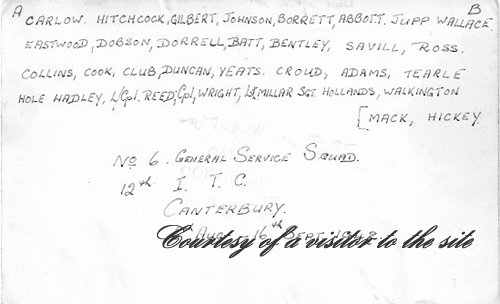 A B
CARLOW. HITCHCOCK, GILBERT, JOHNSON, BORRETT, ABBOTT. JUPP WALLACE.
EASTWOOD, DOBSON, DORRELL, BATT, BENTLEY, SAVILL, ROSS.
COLLINS, COOK, CLUB, DUNCAN, YEATS. CROUD, ADAMS, TEARLE
HOLE HADLEY, L/Cpl. REED, Cpl, WRIGHT, Lt. MILLAR SGT. HOLLANDS, WALKINGTON
[MACK, HICKEY.
No 6. GENERAL SERVICE SQUAD.
12th I. T. C.
CANTERBURY.
AUG - 16th SEPT. 1942
Courtesy of a visitor to the site